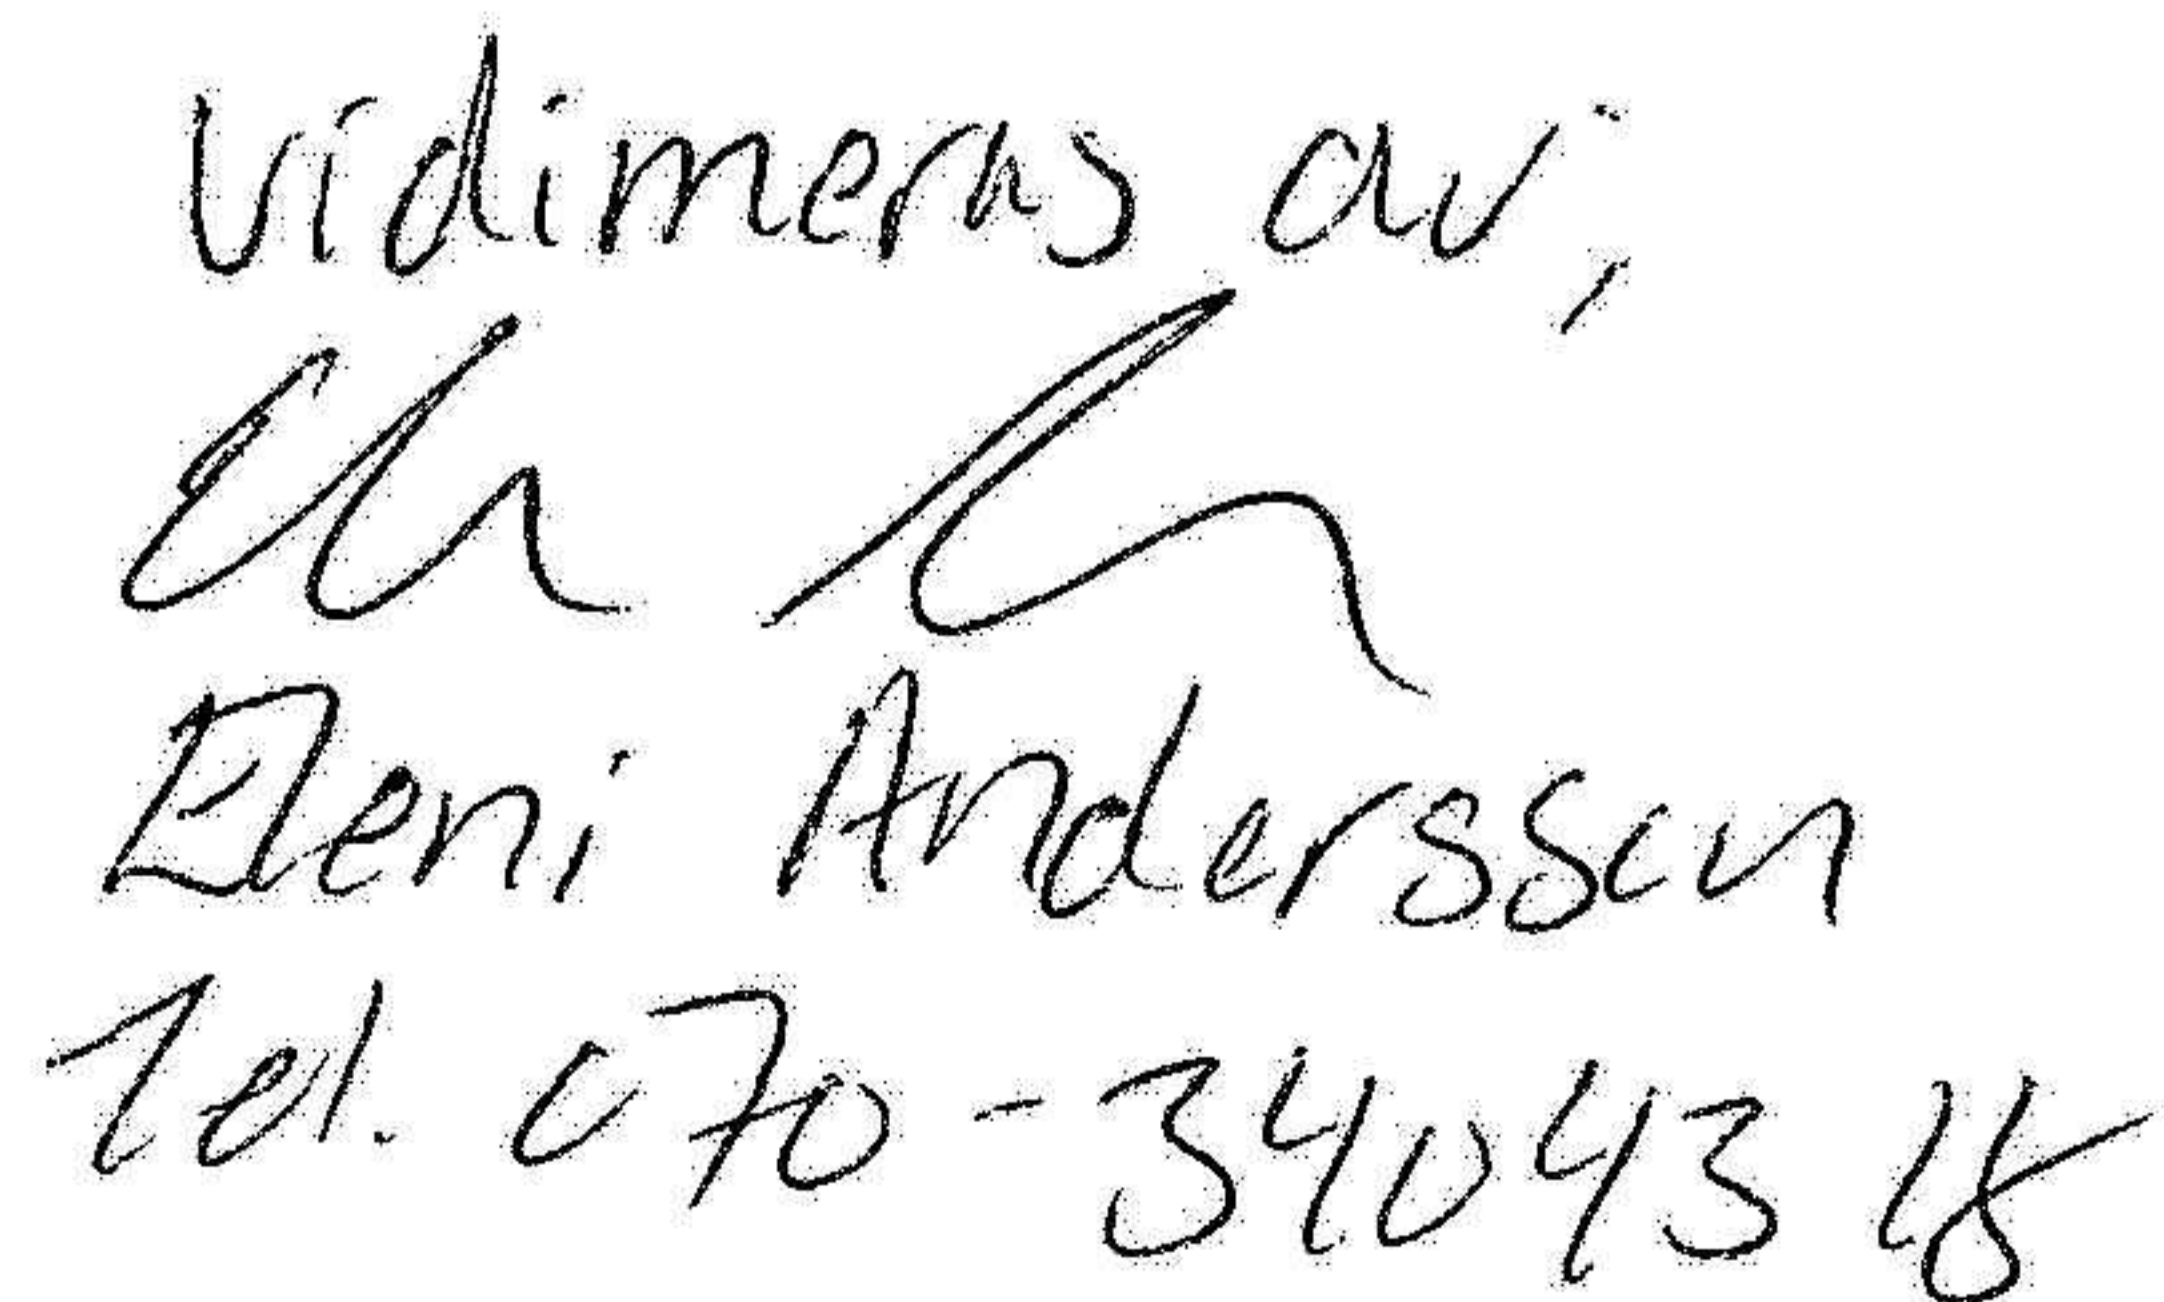 Vidimeras av;
Eleni Andersson
Tel. 070-34043 18